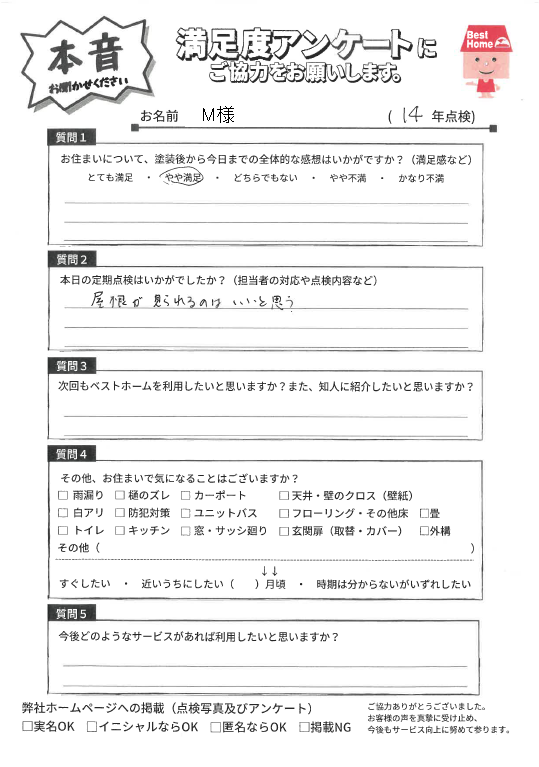 本音
お聞かせください
満足度アンケートに
ご協力をお願いします。
Best
Home
お名前 M様 ( 14 年点検)
質問1
お住まいについて、塗装後から今日までの全体的な感想はいかがですか？（満足感など）
とても満足 ・ やや満足 ・ どちらでもない ・ やや不満 ・ かなり不満
質問2
本日の定期点検はいかがでしたか？（担当者の対応や点検内容など）
屋根が見られるのはいいと思う
質問3
次回もベストホームを利用したいと思いますか？また、知人に紹介したいと思いますか？
質問4
その他、お住まいで気になることはございますか？
□ 雨漏り □ 樋のズレ □ カーポート □ 天井・壁のクロス（壁紙）
□ 白アリ □ 防犯対策 □ ユニットバス □ フローリング・その他床 □畳
□ トイレ □ キッチン □ 窓・サッシ廻り □ 玄関扉（取替・カバー） □外構
その他（ ）
↓↓
すぐしたい ・ 近いうちにしたい（ ）月頃 ・ 時期は分からないがいずれしたい
質問5
今後どのようなサービスがあれば利用したいと思いますか？
弊社ホームページへの掲載（点検写真及びアンケート）
□実名OK □イニシャルならOK □匿名ならOK □掲載NG
ご協力ありがとうございました。
お客様の声を真摯に受け止め、
今後もサービス向上に努めて参ります。